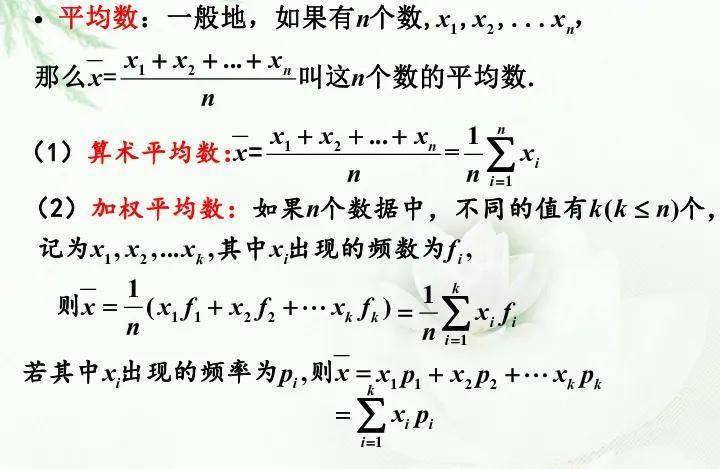 • 平均数：一般地，如果有n个数,x₁,x₂,...xₙ,
那么x̄=(x₁+x₂+...+xₙ)/n 叫这n个数的平均数.
（1）算术平均数:x̄=(x₁+x₂+...+xₙ)/n=1/n ∑ᵢ₌₁ⁿ xᵢ
（2）加权平均数：如果n个数据中，不同的值有k(k≤n)个，
记为x₁,x₂,...xₖ,其中xᵢ出现的频数为fᵢ,
则x̄=1/n(x₁f₁+x₂f₂+⋯xₖfₖ)=1/n ∑ᵢ₌₁ᵏ xᵢfᵢ
若其中xᵢ出现的频率为pᵢ,则x̄=x₁p₁+x₂p₂+⋯xₖpₖ
=∑ᵢ₌₁ᵏ xᵢpᵢ